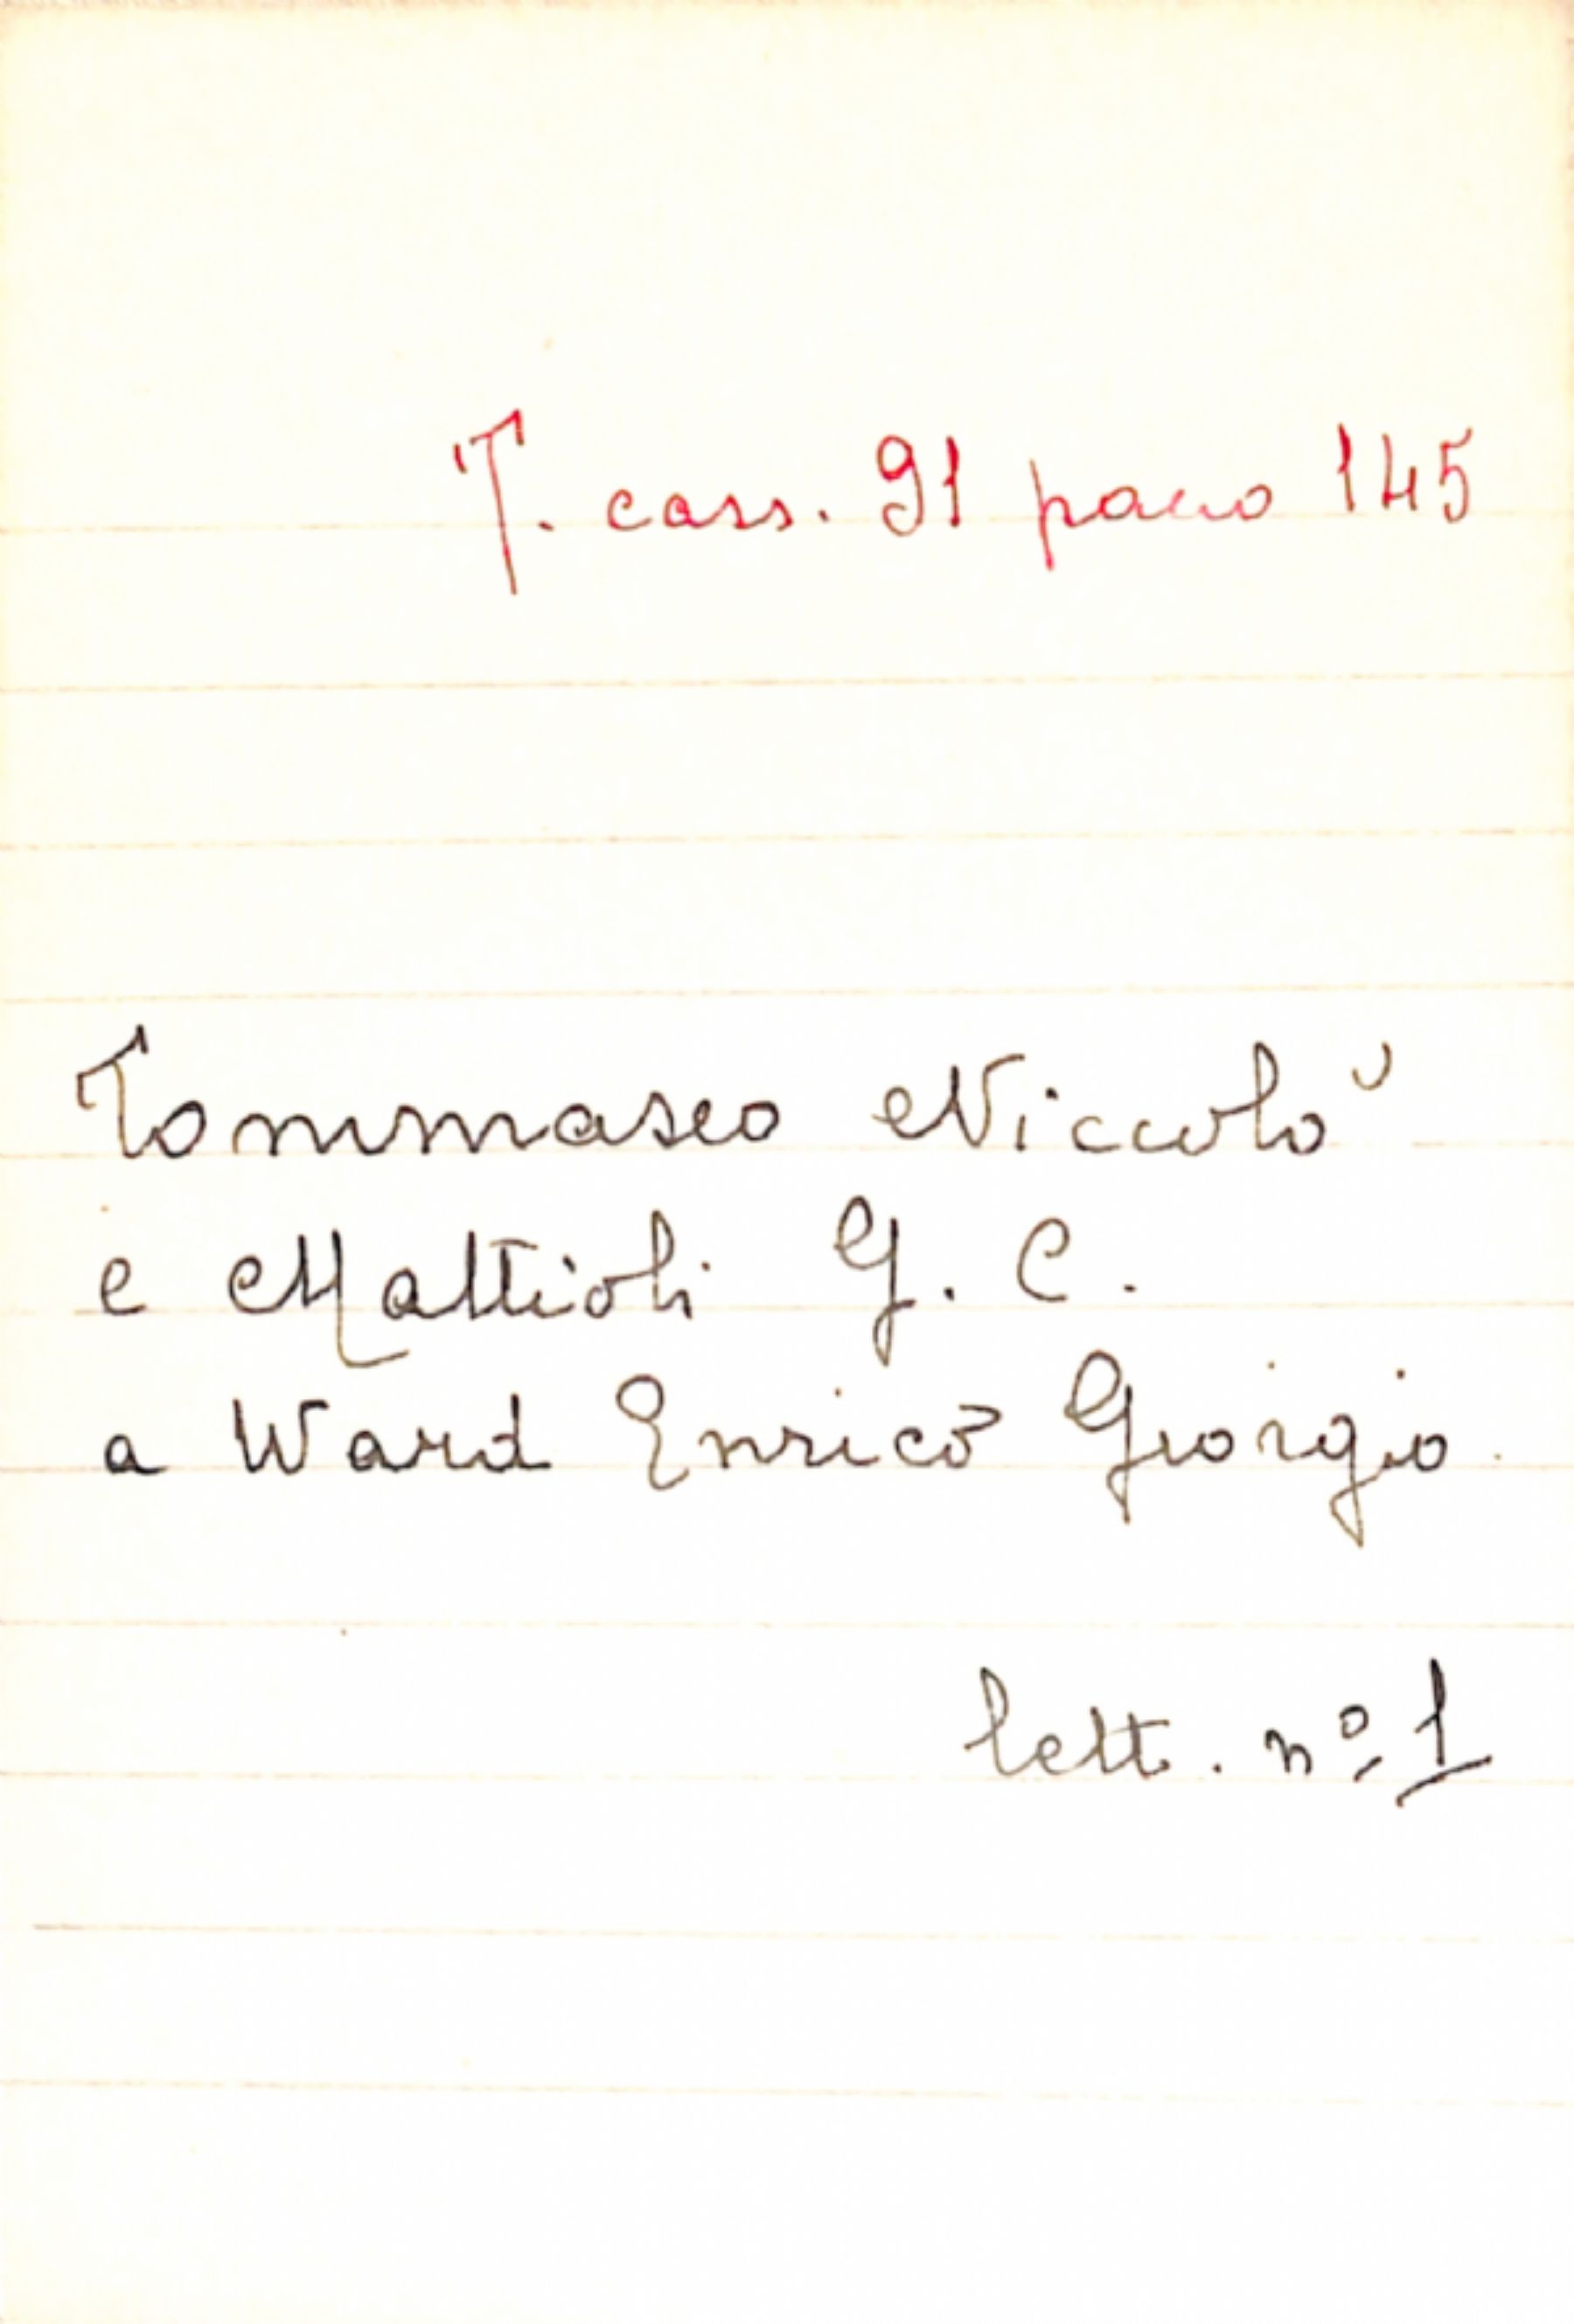 T. cass. 91 pacco 145
Tommaseo Niccolò
e Mattioli G. C.
a Ward Enrico Giorgio.
lett. nº 1